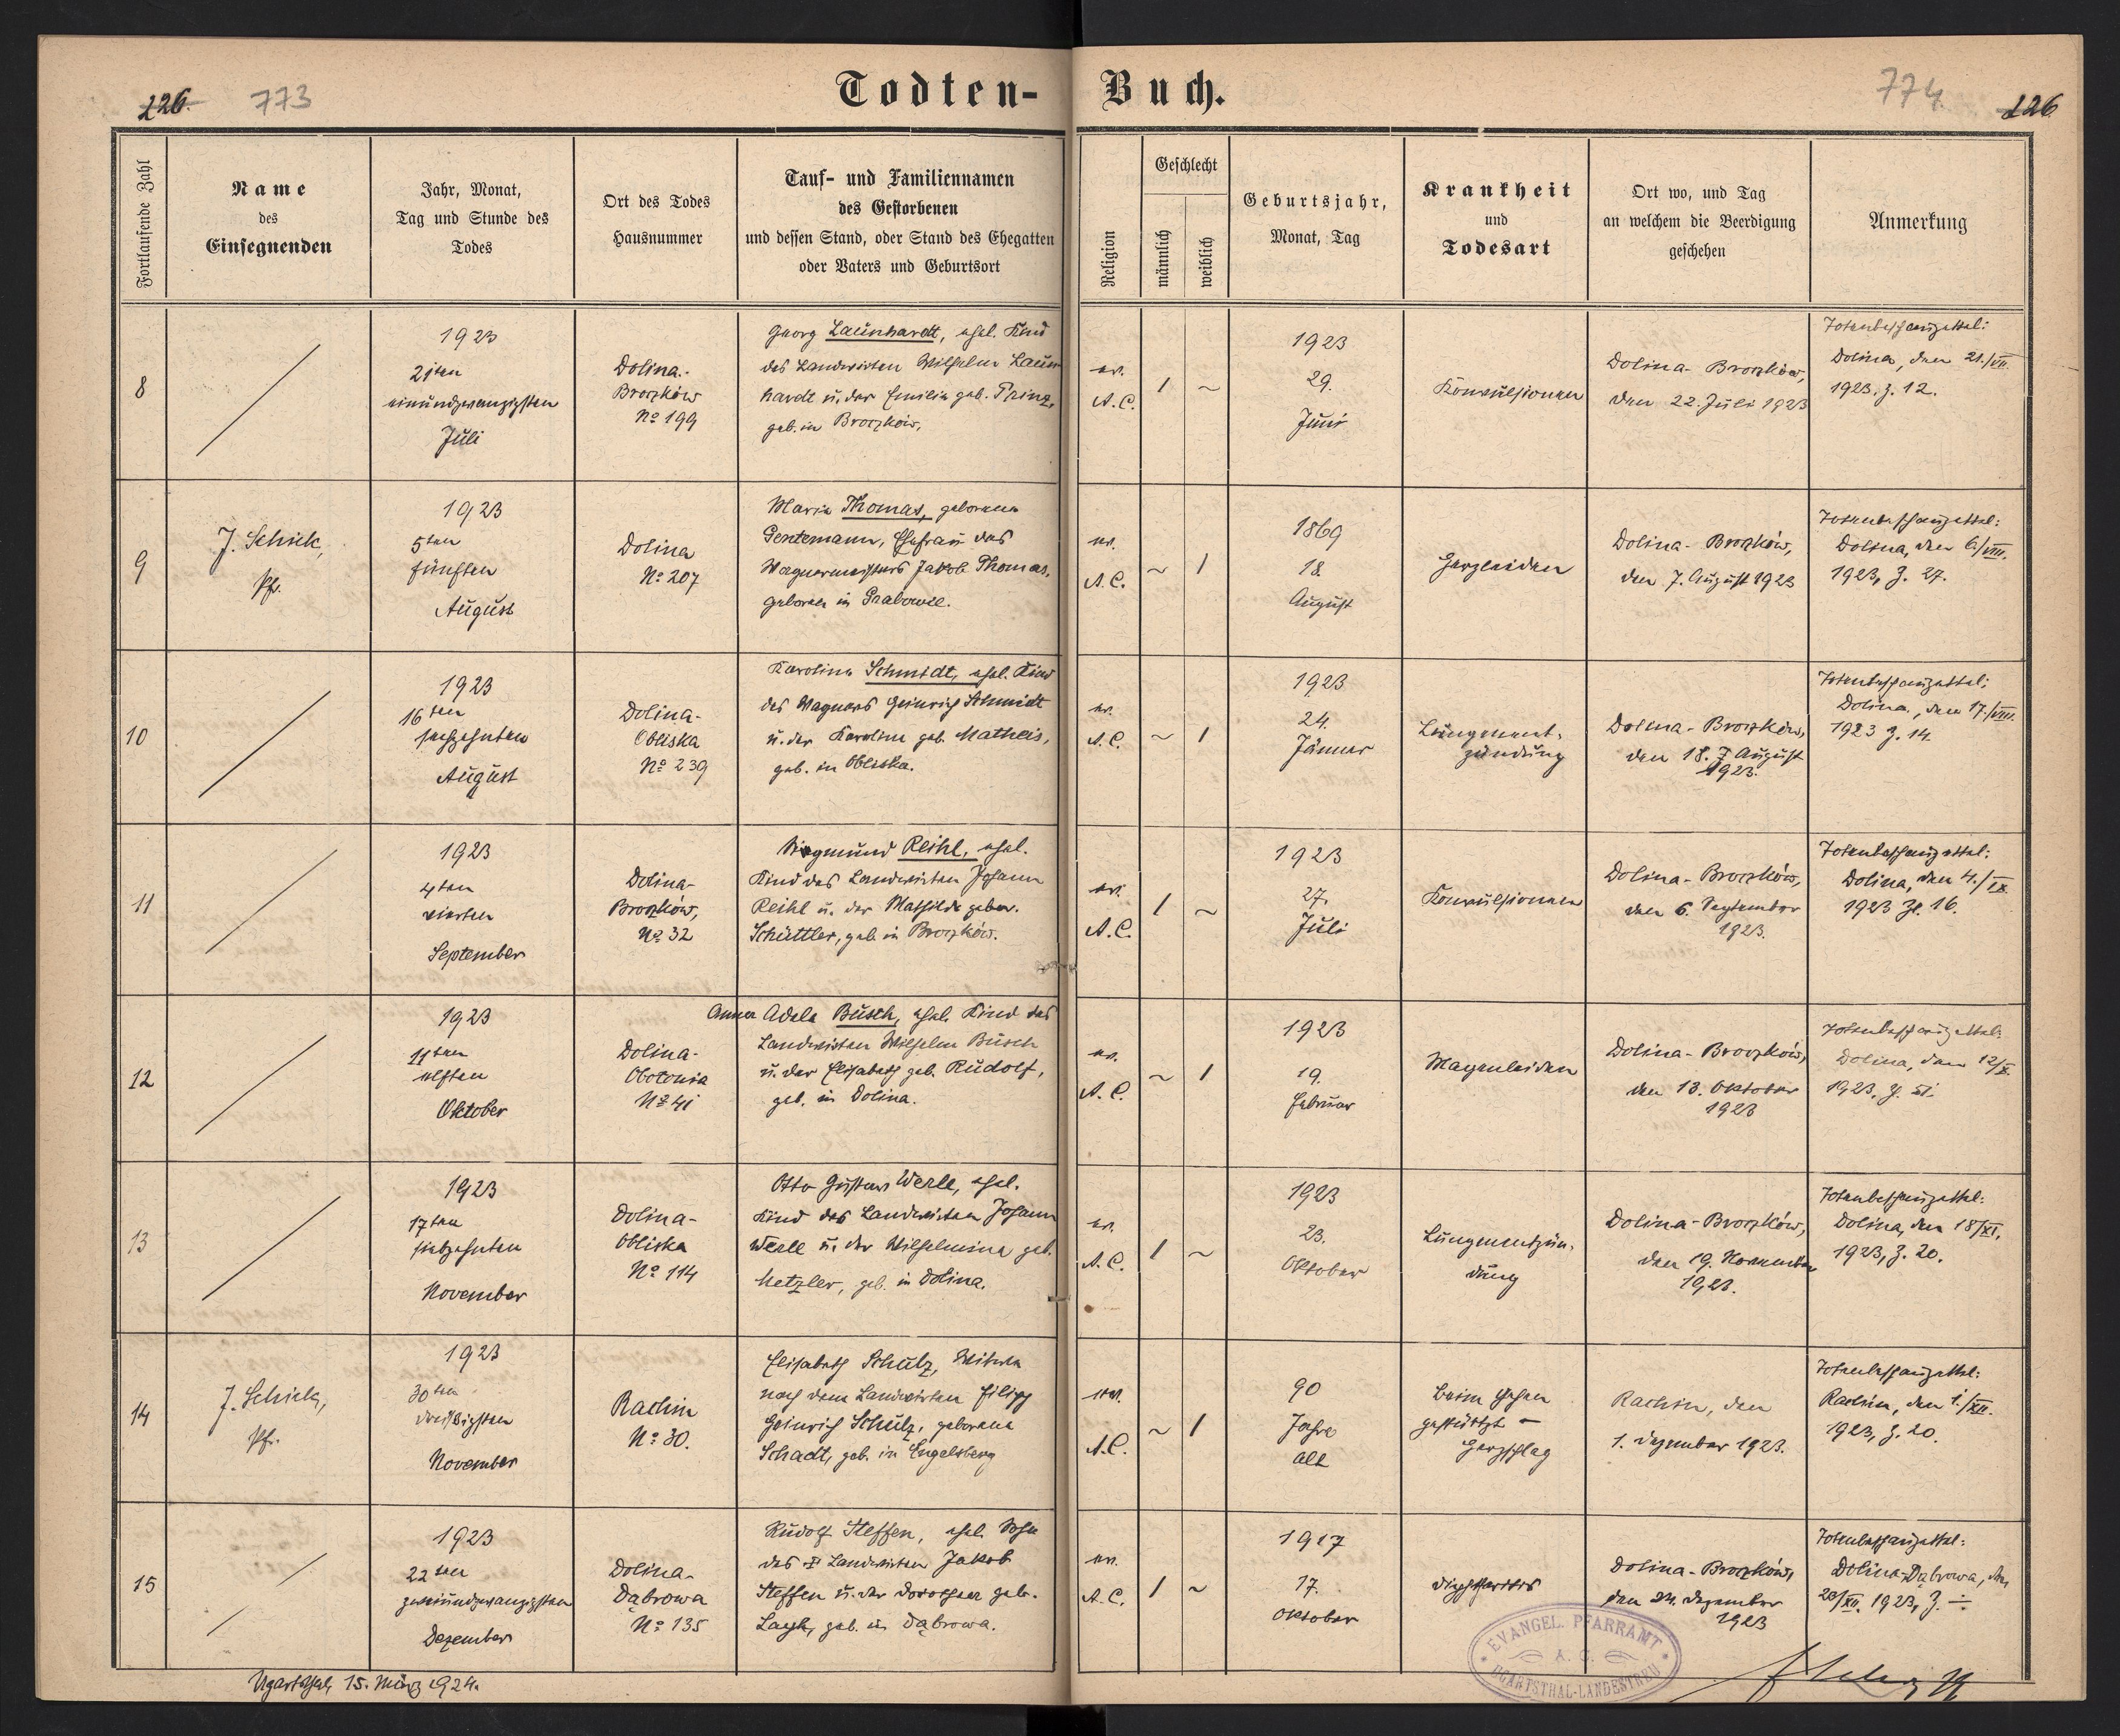 226. 773
Todten-Buch.
774 226
Fortlaufende Zahl
Name
des
Einsegnenden
Jahr, Monat,
Tag und Stunde des
Todes
Ort des Todes
Hausnummer
Tauf- und Familiennamen
des Gestorbenen
und dessen Stand, oder Stand des Ehegatten
oder Vaters und Geburtsort
Religion
Geschlecht
männlich
weiblich
Geburtsjahr,
Monat, Tag
Krankheit
und
Todesart
Ort wo, und Tag
an welchem die Beerdigung
geschehen
Anmerkung
8
1923
21ten
einundzwanzigsten
Juli
Dolina-
Broczków
No 199
Georg Launhardt, ehel. Kind
des Landwirten Wilhelm Laun
hardt u. der Emilie geb. Prinz,
geb. in Broczków.
ev.
A.C.
1 ~
1923
29.
Juni
Konvulsionen
Dolina-Broczków,
den 22. Juli 1923
Totenbeschauzettel:
Dolina, den 21./VII.
1923, Z. 12.
9
J. Schick,
Pfr.
1923
5ten
fünften
August
Dolina
No 207
Maria Thomas, geborene
Gentemann, Ehefrau des
Wagnermeisters Jakob Thomas,
geboren in Grabowce.
ev.
A.C.
~ 1
1869
18.
August
Herzleiden
Dolina-Broczków,
den 7. August 1923
Totenbeschauzettel:
Dolina, den 6/VIII.
1923, Z. 27.
10
1923
16ten
sechzehnten
August
Dolina-
Obliska
No 239
Karoline Schmidt, ehel. Kind
des Wagners Heinrich Schmidt
u. der Karoline geb. Matheis,
geb. in Obliska.
ev.
A.C.
~ 1
1923
24.
Jänner
Lungenent-
zündung
Dolina-Broczków,
den 18. August
1923.
Totenbeschauzettel:
Dolina, den 17./VIII.
1923 Z. 14.
11
1923
4ten
vierten
September
Dolina-
Broczków,
No 32
Siegmund Reihl, ehel.
Kind des Landwirten Johann
Reihl u. der Mathilde gebor.
Schüttler, geb. in Broczków.
ev.
A.C.
1 ~
1923
27.
Juli
Konvulsionen
Dolina-Broczków,
den 6. September
1923.
Totenbeschauzettel:
Dolina, den 4./IX.
1923 Zl. 16.
12
1923
11ten
elften
Oktober
Dolina-
Obolonia
No 41
Anna Adele Busch, ehel. Kind des
Landwirten Wilhelm Busch
u. der Elisabeth geb. Rudolf,
geb. in Dolina.
ev.
A.C.
~ 1
1923
19.
Februar
Magenleiden
Dolina-Broczków,
den 13. Oktober
1923
Totenbeschauzettel:
Dolina, den 12/X.
1923, Z.
13
1923
17ten
siebzehnten
November
Dolina-
Obliska
No 114
Otto Gustav Werle, ehel.
Kind des Landwirten Johann
Werle u. der Wilhelmine geb.
Metzler, geb. in Dolina.
ev.
A.C.
1 ~
1923
23.
Oktober
Lungenentzün-
dung
Dolina-Broczków,
den 19. November
1923.
Totenbeschauzettel:
Dolina, den 18/XI.
1923, Z. 20.
14
J. Schick,
Pfr.
1923
30ten
dreißigsten
November
Rachin
No 30.
Elisabeth Schulz, Witwe
nach dem Landwirten Filipp
Heinrich Schulz, geborene
Schadt, geb. in Engelsberg
ev.
A.C.
~ 1
90
Jahre
alt
Beim Gehen
gestürtzt –
Herzschlag
Rachin, den
1. Dezember 1923.
Totenbeschauzettel:
Rachin, den 1./XII.
1923, Z. 20.
15
1923
22ten
zweiundzwanzigsten
Dezember
Dolina-
Dąbrowa
No 135
Rudolf Steffen, ehel. Sohn
des Landwirten Jakob
Steffen u. der Dorothea geb.
Layh, geb. in Dąbrowa.
ev.
A.C.
1 ~
1917
17.
Oktober
Diphtheritis
Dolina-Broczków,
den 24. Dezember
1923
Totenbeschauzettel:
Dolina-Dąbrowa, den
1923, Z. ÷
Ugartsthal, 15. März 1924.
EVANGEL. PFARRAMT
A. C.
UGARTSTHAL-LANDESTREU